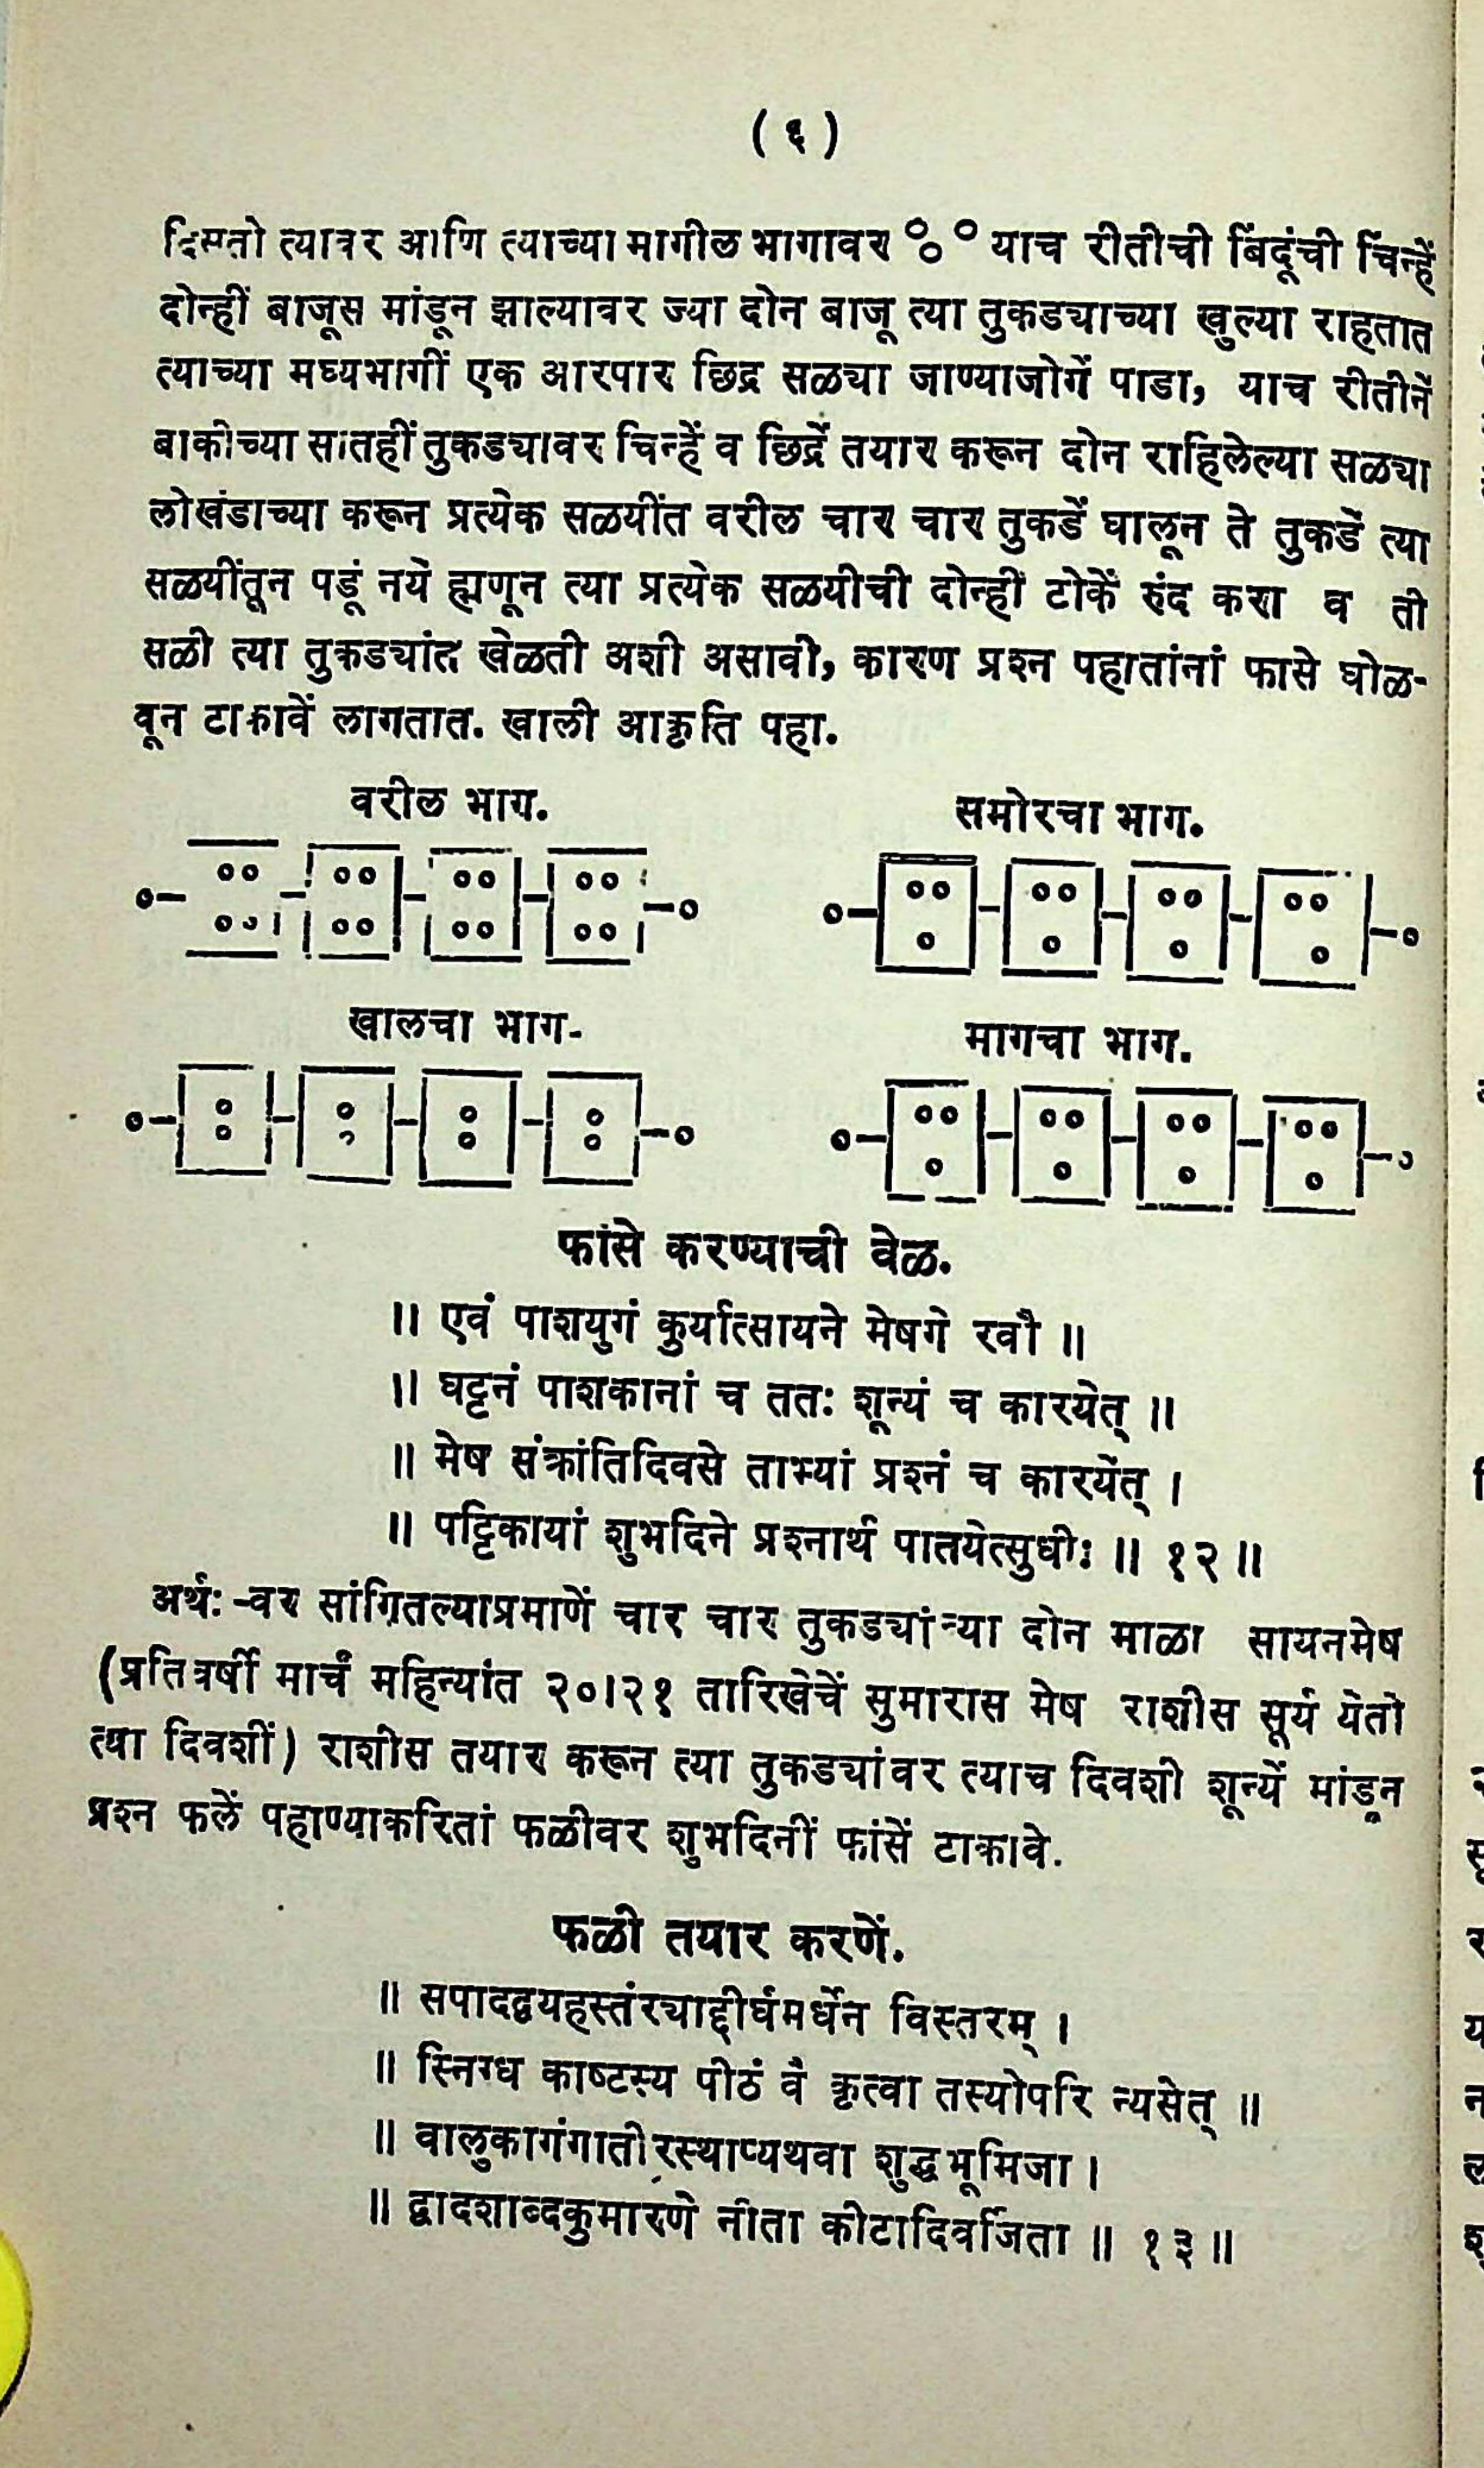 ( ६ )
दिसतो त्यावर आणि त्याच्या मागील भागावर याच रीतीची बिंदूंची चिन्हें
दोन्हीं बाजूस मांडून झाल्यावर ज्या दोन बाजू त्या तुकड्याच्या खुल्या राहतात
त्याच्या मध्यभागीं एक आरपार छिद्र सळ्या जाण्याजोगें पाडा, याच रीतीनें
बाकीच्या सातहीं तुकड्यावर चिन्हें व छिद्रें तयार करून दोन राहिलेल्या सळ्या
लोखंडाच्या करून प्रत्येक सळयींत वरील चार चार तुकडें घालून ते तुकडें त्या
सळयींतून पडूं नये ह्मणून त्या प्रत्येक सळयीची दोन्हीं टोकें रुंद करा व ती
सळी त्या तुकड्यांत खेळती अशी असावी, कारण प्रश्न पहातांनां फासे घोळ-
वून टाकावें लागतात. खाली आकृति पहा.
वरील भाग.
समोरचा भाग.
खालचा भाग-
मागचा भाग.
फांसे करण्याची वेळ.
॥ एवं पाशयुगं कुर्यात्सायने मेषगे रवौ ॥
॥ घट्टनं पाशकानां च ततः शून्यं च कारयेत् ॥
॥ मेष संक्रांतिदिवसे ताभ्यां प्रश्नं च कारयेत् ।
॥ पट्टिकायां शुभदिने प्रश्नार्थ पातयेत्सुधीः ॥ १२ ॥
अर्थः-वर सांगितल्याप्रमाणें चार चार तुकड्यांच्या दोन माळा सायनमेष
(प्रतिवर्षी मार्च महिन्यांत २०।२१ तारिखेचें सुमारास मेष राशीस सूर्य येतो
त्या दिवशीं) राशीस तयार करून त्या तुकड्यांवर त्याच दिवशी शून्यें मांडून
प्रश्न फलें पहाण्याकरितां फळीवर शुभदिनीं फांसें टाकावे.
फळी तयार करणें.
॥ सपादद्वयहस्तंस्याद्दीर्घमर्धेन विस्तरम् ।
॥ स्निग्ध काष्टस्य पीठं वै कृत्वा तस्योपरि न्यसेत् ॥
॥ वालुकागंगातीरस्थाप्यथवा शुद्धभूमिजा ।
॥ द्वादशाब्दकुमारणे नीता कीटादिवर्जिता ॥ १३ ॥